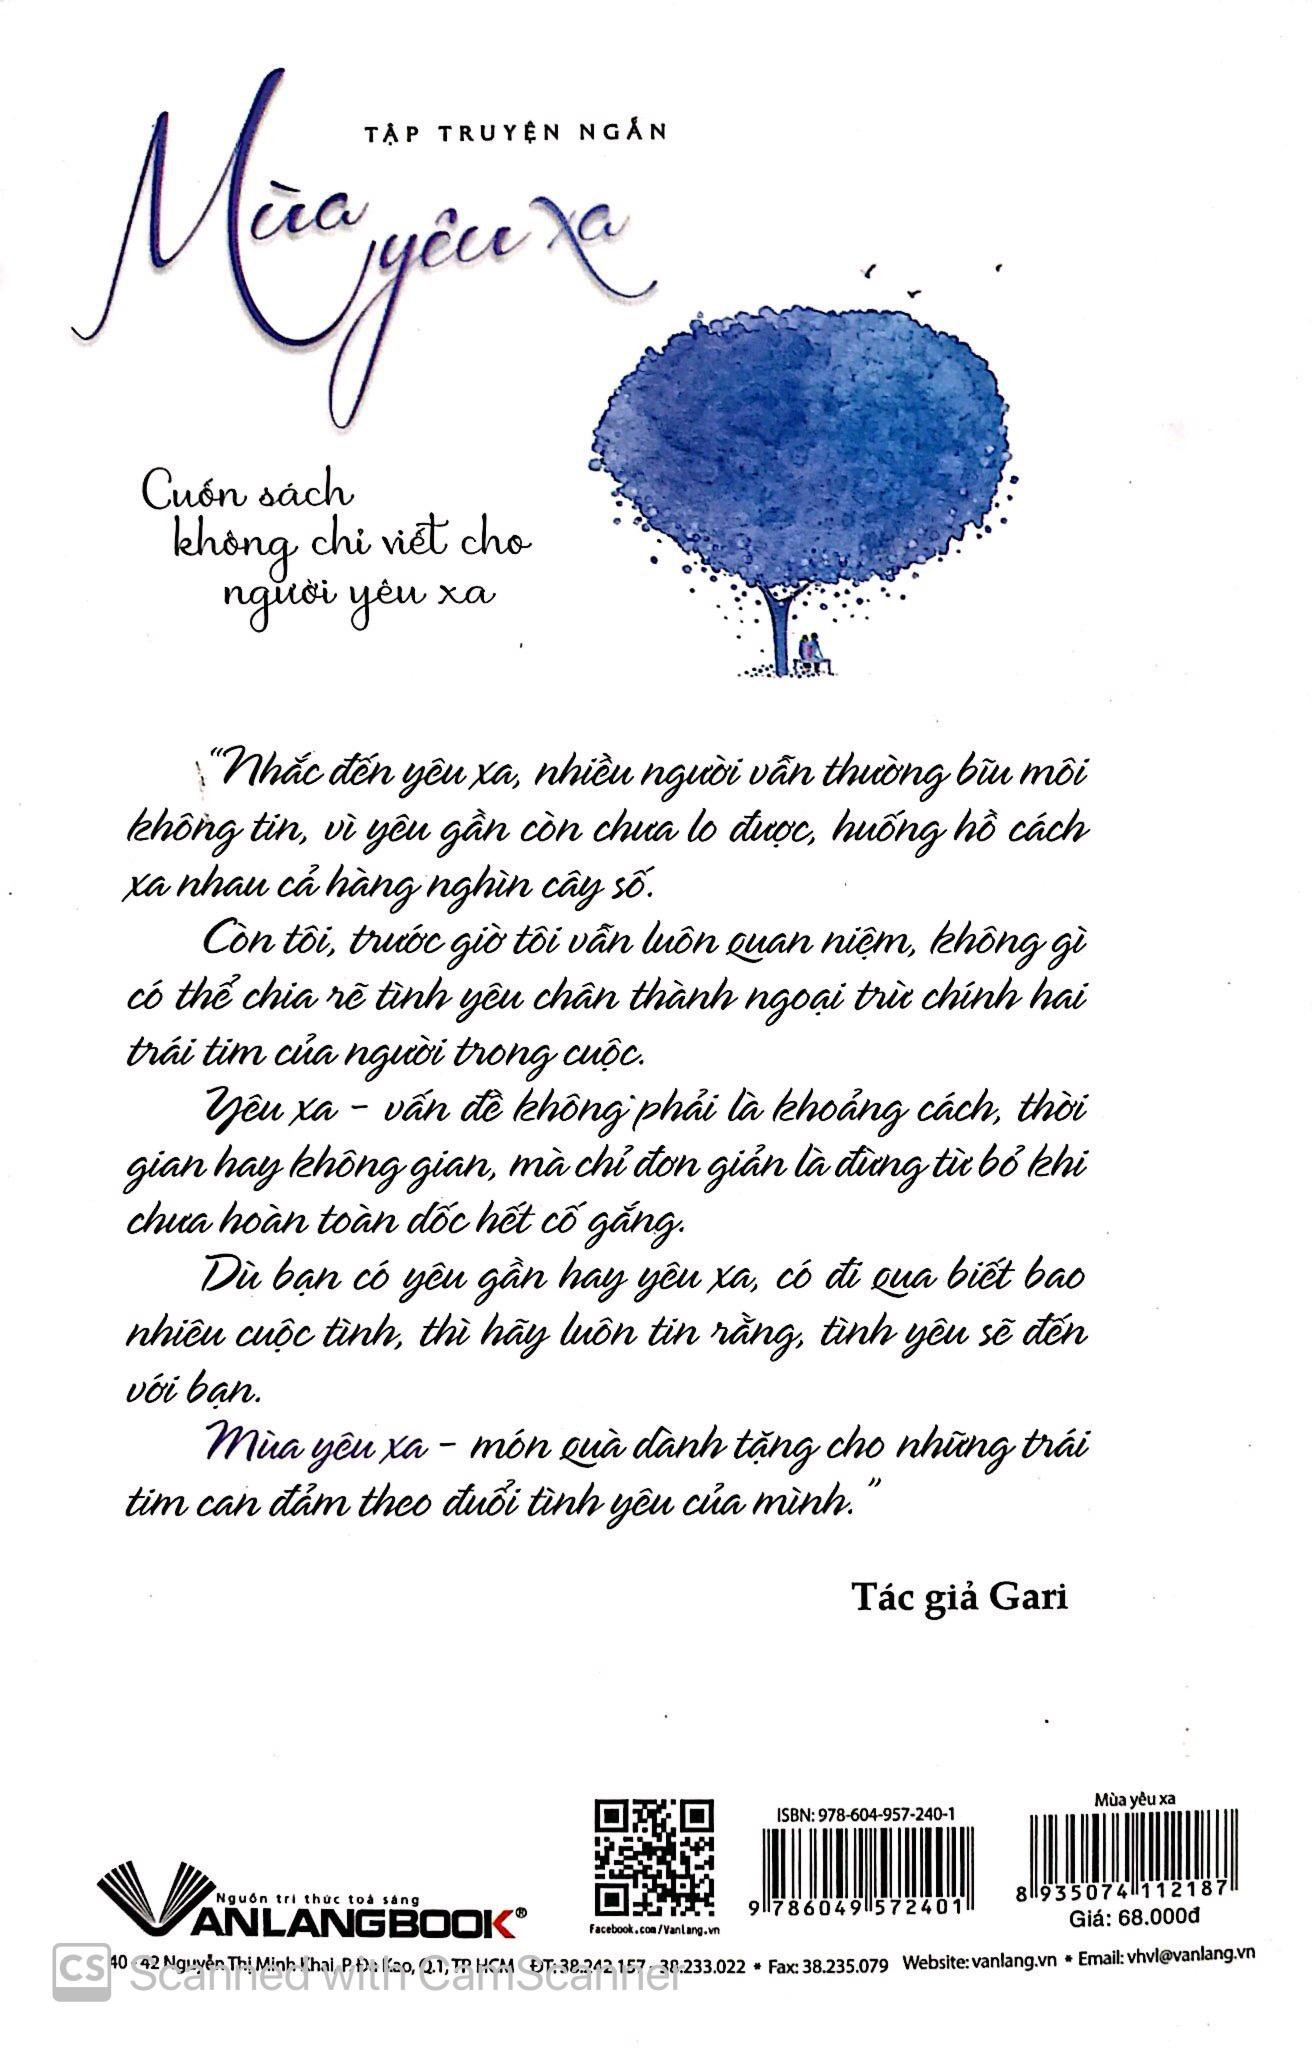 TẬP TRUYỆN NGẮN
Mùa yêu xa
Cuốn sách
không chỉ viết cho
người yêu xa
“Nhắc đến yêu xa, nhiều người vẫn thường bĩu môi
không tin, vì yêu gần còn chưa lo được, huống hồ cách
xa nhau cả hàng nghìn cây số.
Còn tôi, trước giờ tôi vẫn luôn quan niệm, không gì
có thể chia rẽ tình yêu chân thành ngoại trừ chính hai
trái tim của người trong cuộc.
Yêu xa – vấn đề không phải là khoảng cách, thời
gian hay không gian, mà chỉ đơn giản là đừng từ bỏ khi
chưa hoàn toàn dốc hết cố gắng.
Dù bạn có yêu gần hay yêu xa, có đi qua biết bao
nhiêu cuộc tình, thì hãy luôn tin rằng, tình yêu sẽ đến
với bạn.
Mùa yêu xa – món quà dành tặng cho những trái
tim can đảm theo đuổi tình yêu của mình.”
Tác giả Gari
Nguồn tri thức toả sáng
VANLANGBOOK®
Facebook.com/VanLang.vn
ISBN: 978-604-957-240-1
9 786049 572401
Mùa yêu xa
8 935074 112187
Giá: 68.000đ
40 - 42 Nguyễn Thị Minh Khai, P. Đa Kao, Q.1, TP. HCM ĐT: 38.242.157 - 38.233.022 * Fax: 38.235.079 Website: vanlang.vn * Email: vhvl@vanlang.vn
CS Scanned with CamScanner